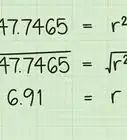 47.7465 = r²
√47.7465 = √r²
6.91 = r